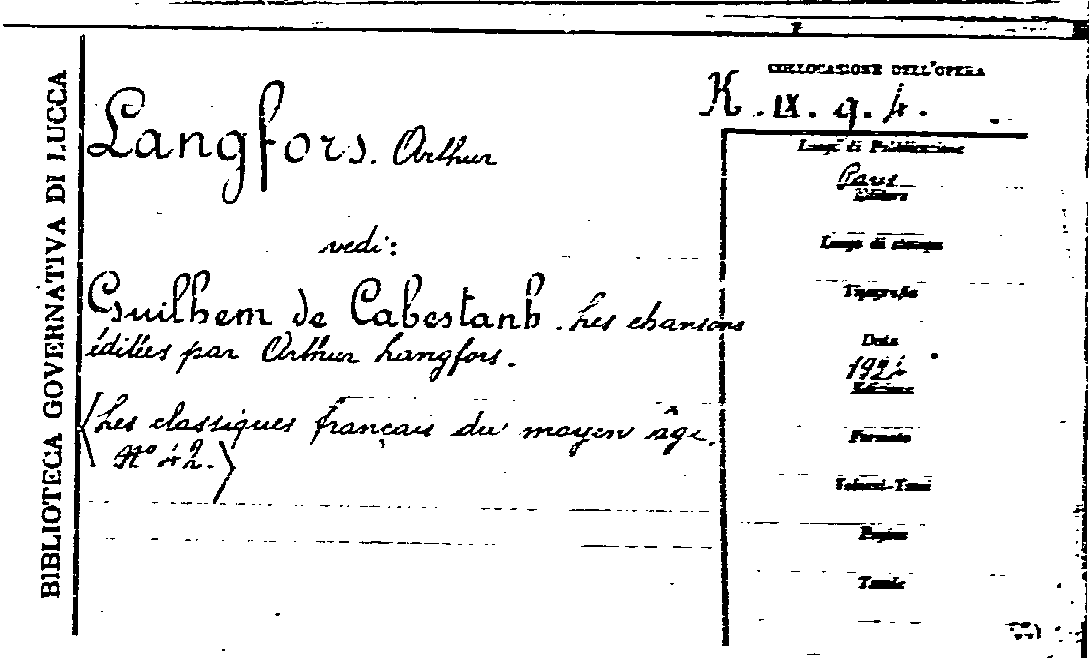 BIBLIOTECA GOVERNATIVA DI LUCCA
COLLOCAZIONE DELL'OPERA
K. IX. 9. 4.
Langfors. Arthur
vedi:
Guilhem de Cabestanh. Les chansons
éditées par Arthur Langfors.
(Les classiques français du moyen âge.
N° 42.)
Luogo di Pubblicazione
Paris
Editore
Luogo di stampa
Tipografia
Data
1924
Edizione
Formato
Volumi-Tomi
Pagine
Tavole